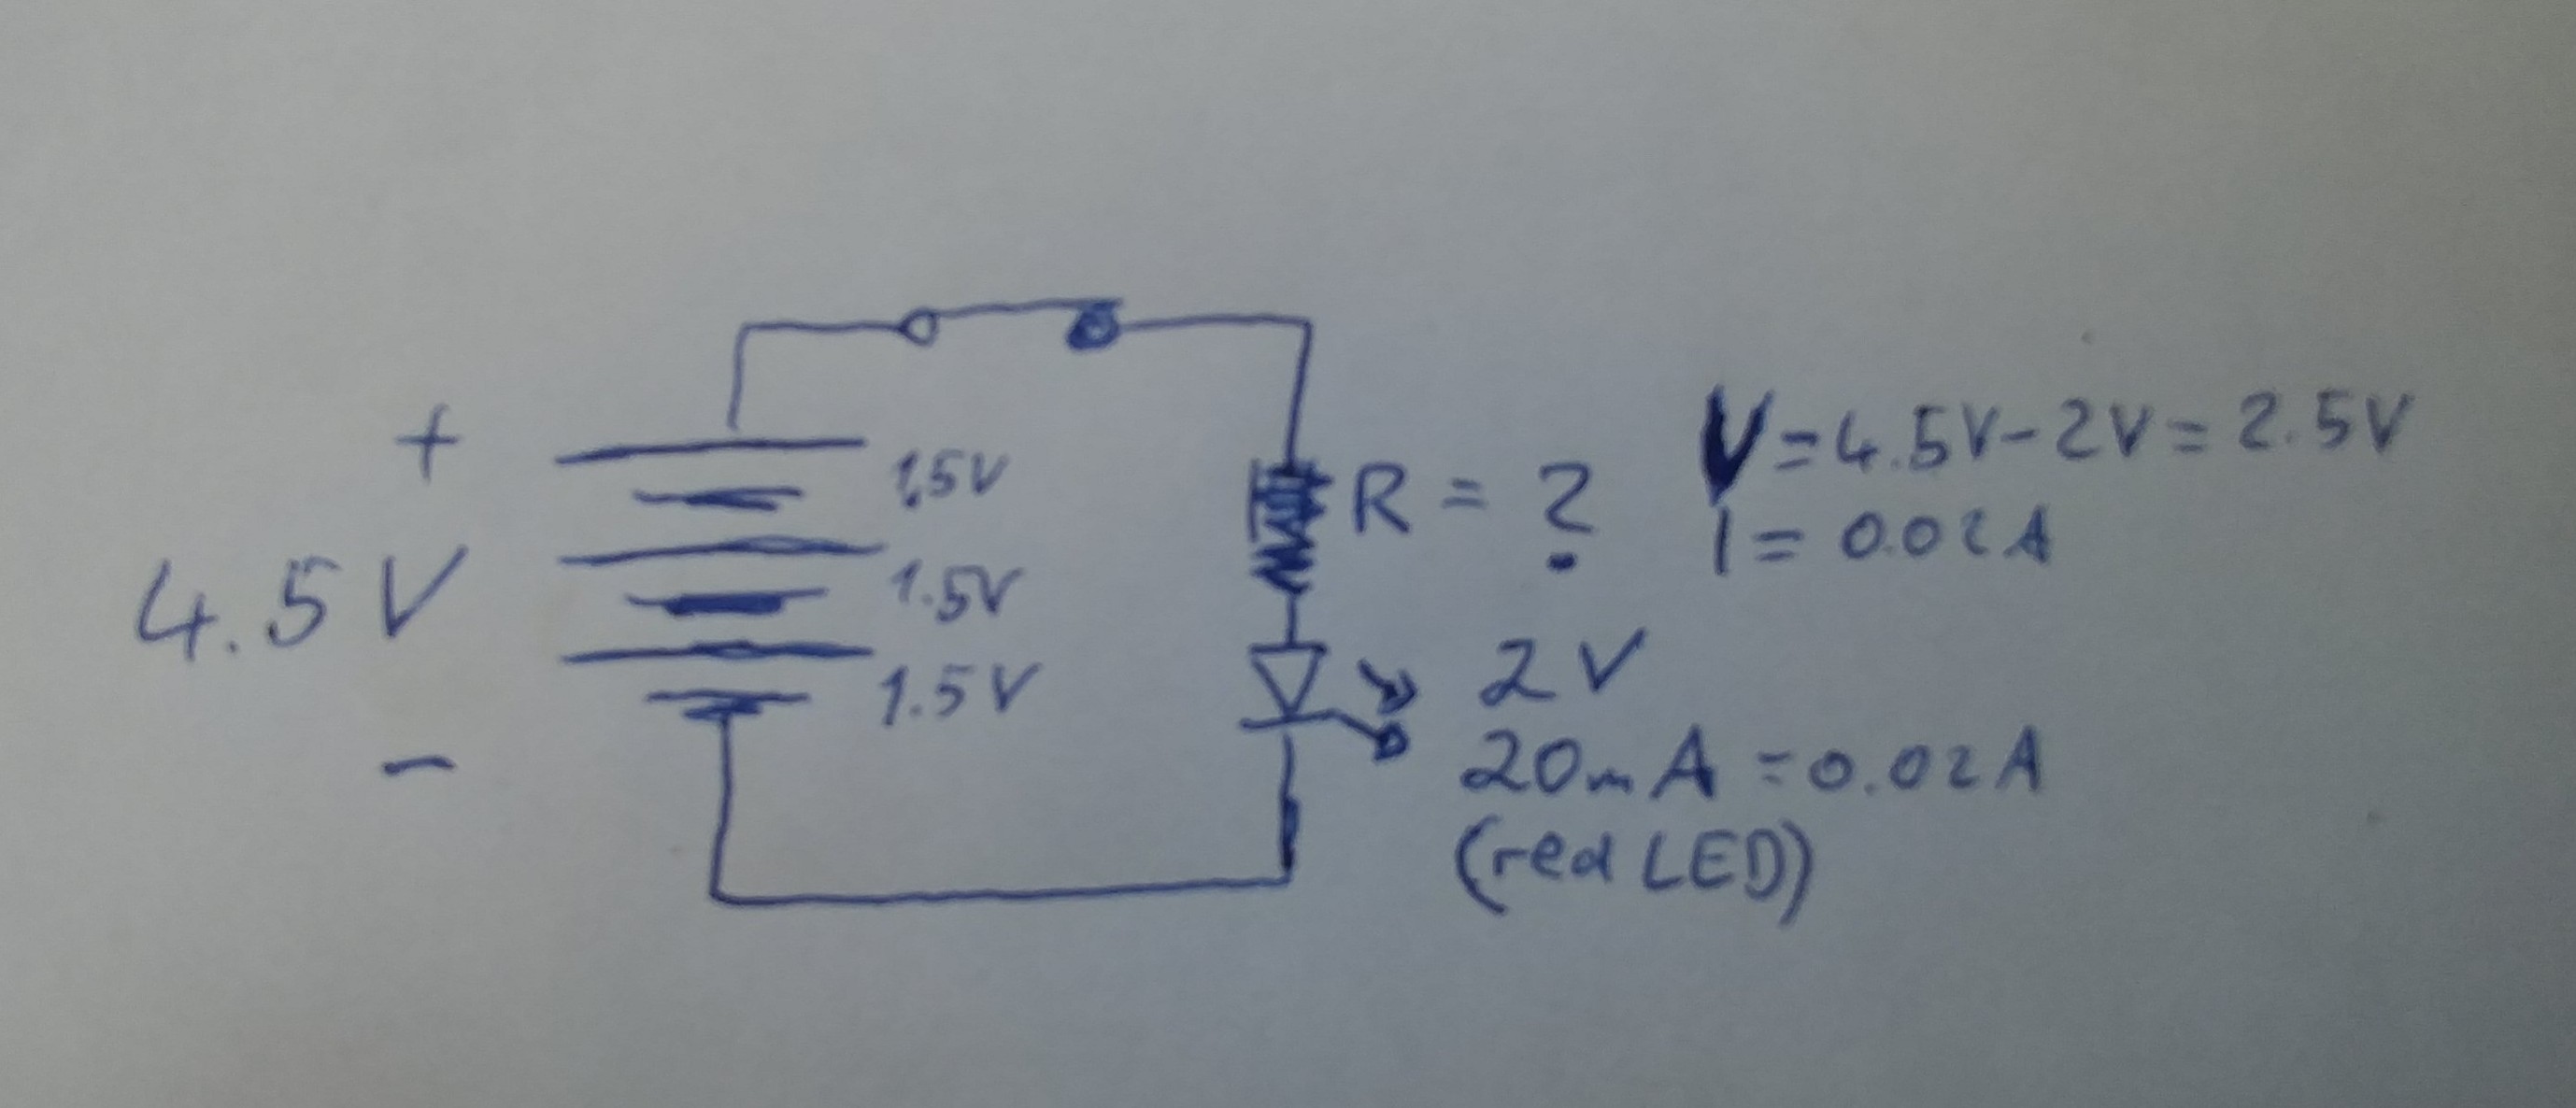 +
4.5V
-
1.5V
1.5V
1.5V
R = ?
V=4.5V-2V=2.5V
I = 0.02A
2V
20mA=0.02A
(red LED)